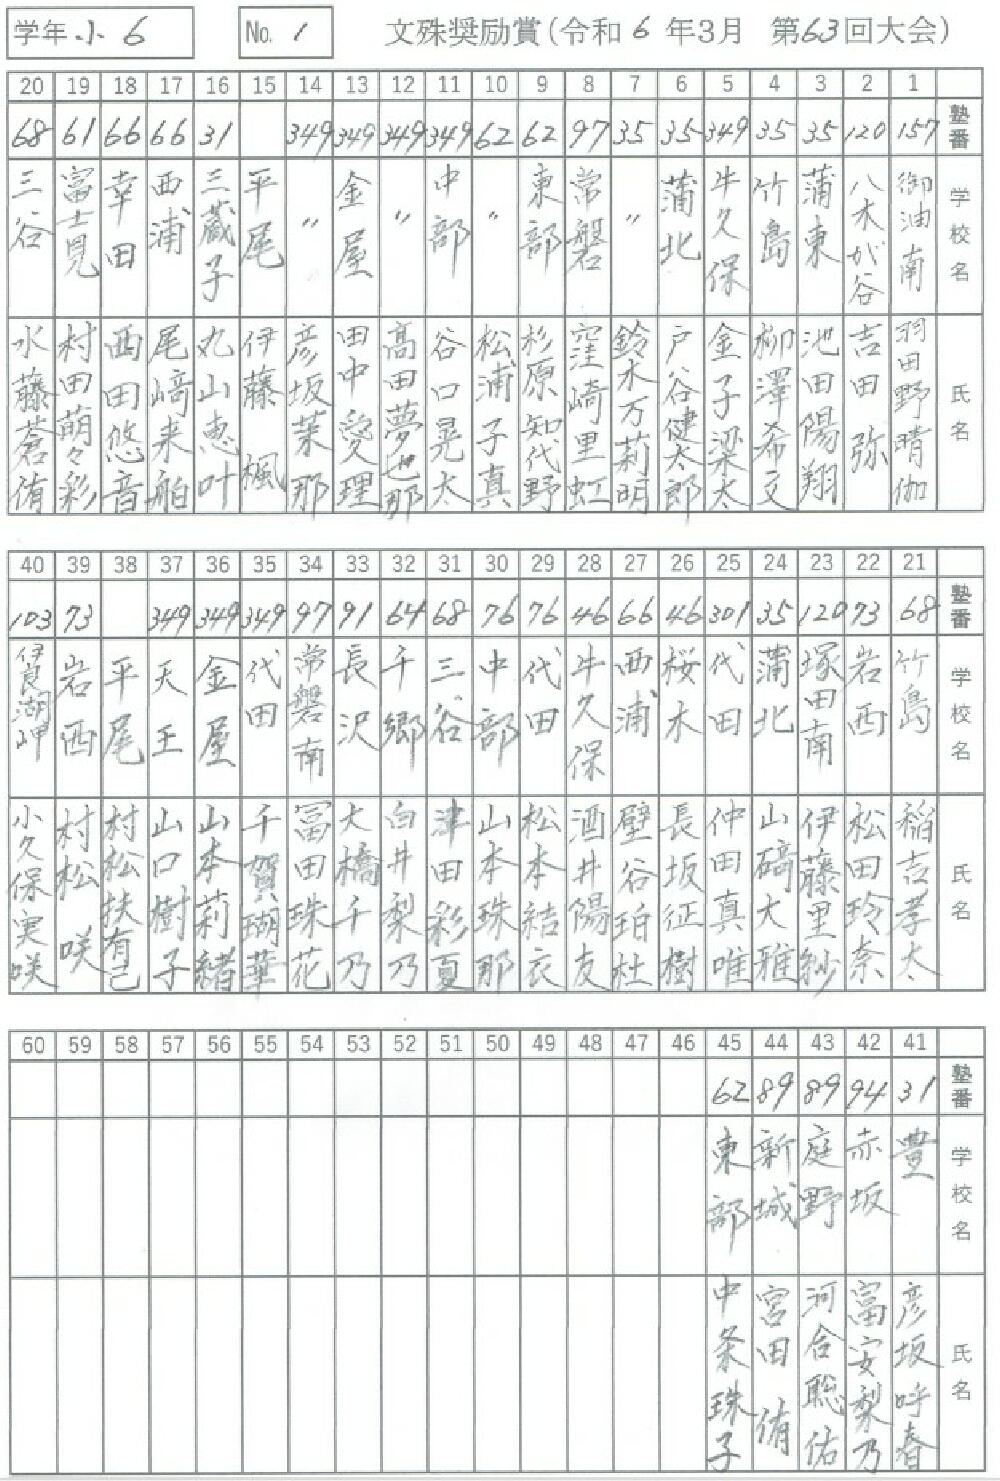 学年 小6 No. 1 文殊奨励賞(令和6年3月 第63回大会)
20 19 18 17 16 15 14 13 12 11 10 9 8 7 6 5 4 3 2 1
68 61 66 66 31 349 349 349 349 62 62 97 35 35 349 35 35 120 157 塾番
三谷 富士見 幸田 西浦 三蔵子 平尾 〃 金屋 〃 中部 〃 東部 常磐 〃 蒲北 牛久保 竹島 蒲東 八木が谷 御油南 学校名
水藤蒼侑 村田萌々彩 西田悠音 尾﨑来舶 丸山恵叶 伊藤楓 彦坂茉那 田中愛理 髙田夢也那 谷口晃太 松浦子真 杉原知代野 窪崎里虹 鈴木万莉明 戸谷健太郎 金子梁太 柳澤希文 池田陽翔 吉田弥 羽田野晴伽 氏名
40 39 38 37 36 35 34 33 32 31 30 29 28 27 26 25 24 23 22 21
103 73 349 349 349 97 91 64 68 76 76 46 66 46 301 35 120 73 68 塾番
伊良湖岬 岩西 平尾 天王 金屋 代田 常磐南 長沢 千郷 三谷 中部 代田 牛久保 西浦 桜木 代田 蒲北 塚田南 岩西 竹島 学校名
小久保実咲 村松咲 村松扶有己 山口樹子 山本莉緒 千賀瑚華 冨田珠花 大橋千乃 白井梨乃 津田彩夏 山本珠那 松本結衣 酒井陽友 壁谷珀杜 長坂征樹 仲田真唯 山碕大雅 伊藤里紗 松田玲奈 稲吉孝太 氏名
60 59 58 57 56 55 54 53 52 51 50 49 48 47 46 45 44 43 42 41
62 89 89 94 31 塾番
東部 新城 庭野 赤坂 豊 学校名
中条珠子 宮田侑 河合聡佑 冨安梨乃 彦坂呼春 氏名